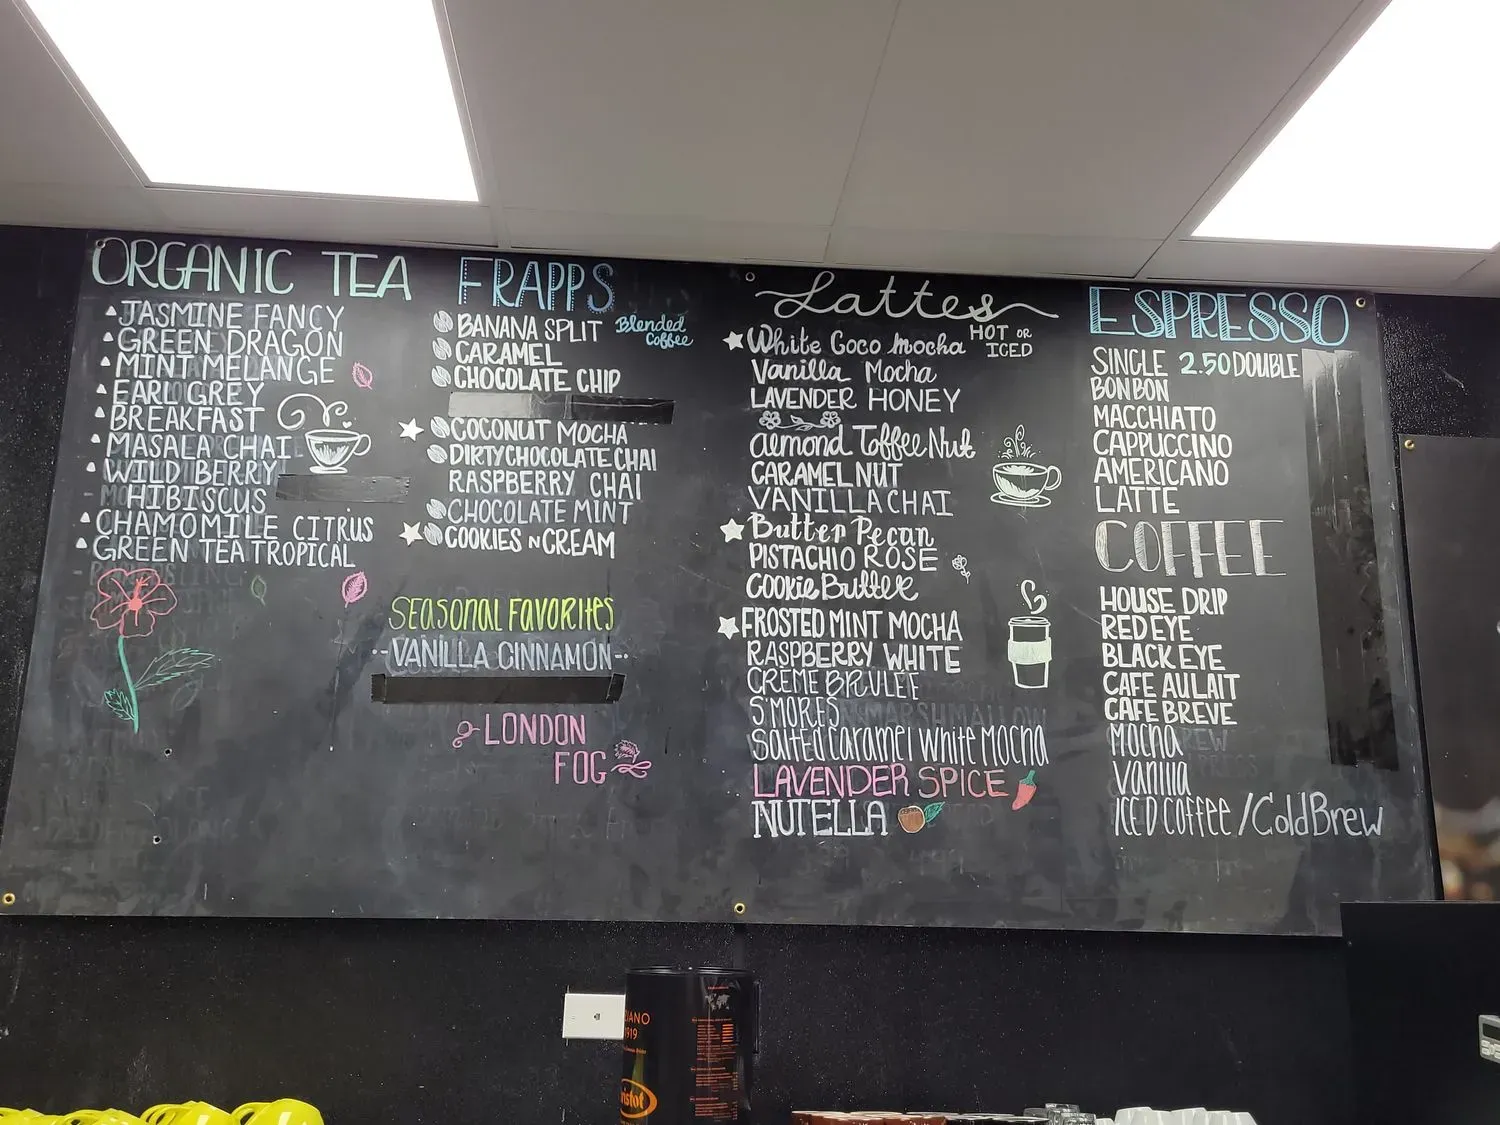 ORGANIC TEA
JASMINE FANCY
GREEN DRAGON
MINT MELANGE
EARL GREY
BREAKFAST
MASALA CHAI
WILD BERRY
HIBISCUS
CHAMOMILE CITRUS
GREEN TEA TROPICAL
FRAPPS
Blended
coffee
BANANA SPLIT
CARAMEL
CHOCOLATE CHIP
COCONUT MOCHA
DIRTY CHOCOLATE CHAI
RASPBERRY CHAI
CHOCOLATE MINT
COOKIES N CREAM
SEASONAL FAVORITES
VANILLA CINNAMON
LONDON
FOG
Lattes
HOT OR
ICED
White Coco Mocha
Vanilla Mocha
LAVENDER HONEY
Almond Toffee Nut
CARAMEL NUT
VANILLA CHAI
Butter Pecan
PISTACHIO ROSE
Cookie Butter
FROSTED MINT MOCHA
RASPBERRY WHITE
CREME BRULEE
S'MORES
Salted Caramel White Mocha
LAVENDER SPICE
NUTELLA
ESPRESSO
SINGLE 2.50 DOUBLE
BONBON
MACCHIATO
CAPPUCCINO
AMERICANO
LATTE
COFFEE
HOUSE DRIP
RED EYE
BLACK EYE
CAFE AU LAIT
CAFE BREVE
Mocha
Vanilla
ICED COFFEE / Cold Brew